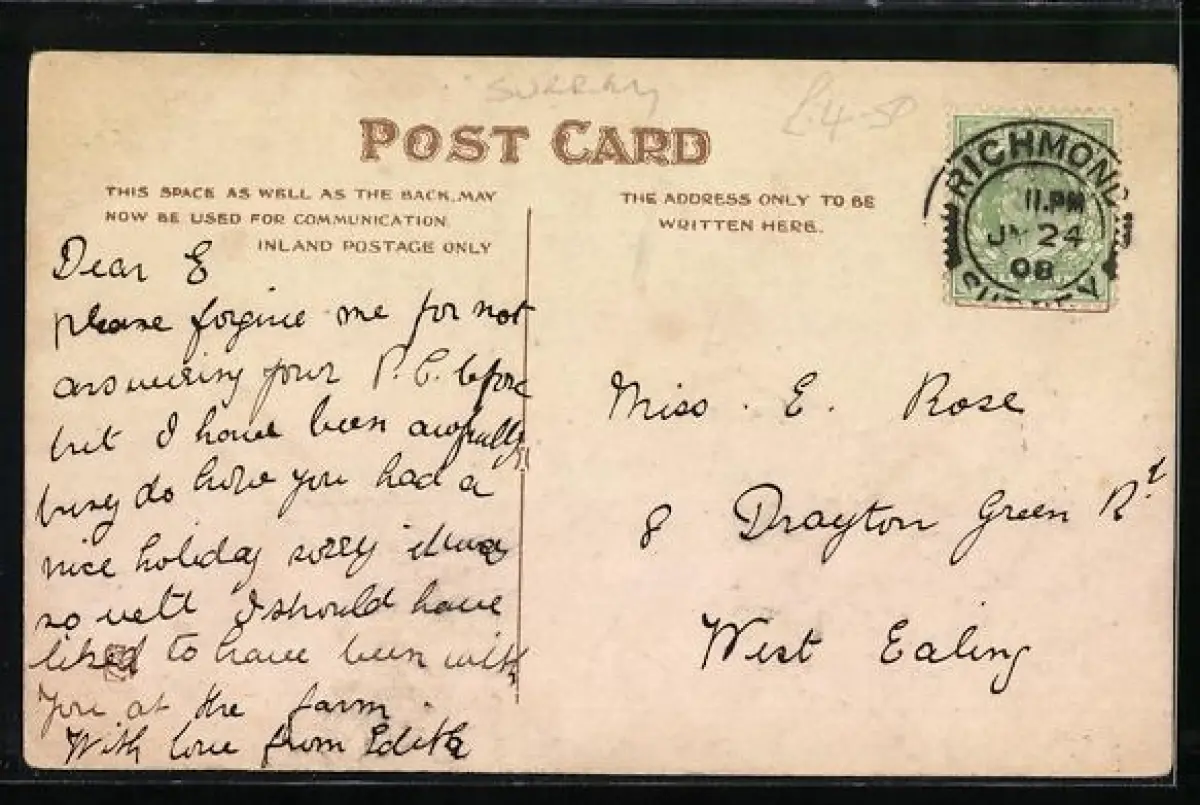 SURREY
£4-50
POST CARD
THIS SPACE AS WELL AS THE BACK MAY
NOW BE USED FOR COMMUNICATION.
INLAND POSTAGE ONLY
THE ADDRESS ONLY TO BE
WRITTEN HERE.
RICHMOND
11.PM
JA 24
08
SURREY
Dear E
please forgive me for not
answering your P.C. before
but I have been awfully
busy do hope you had a
nice holiday sorry it was
so wett I should have
liked to have been with
you at the farm.
With love from Edith
Miss. E. Rose
8 Drayton Green Rd
West Ealing